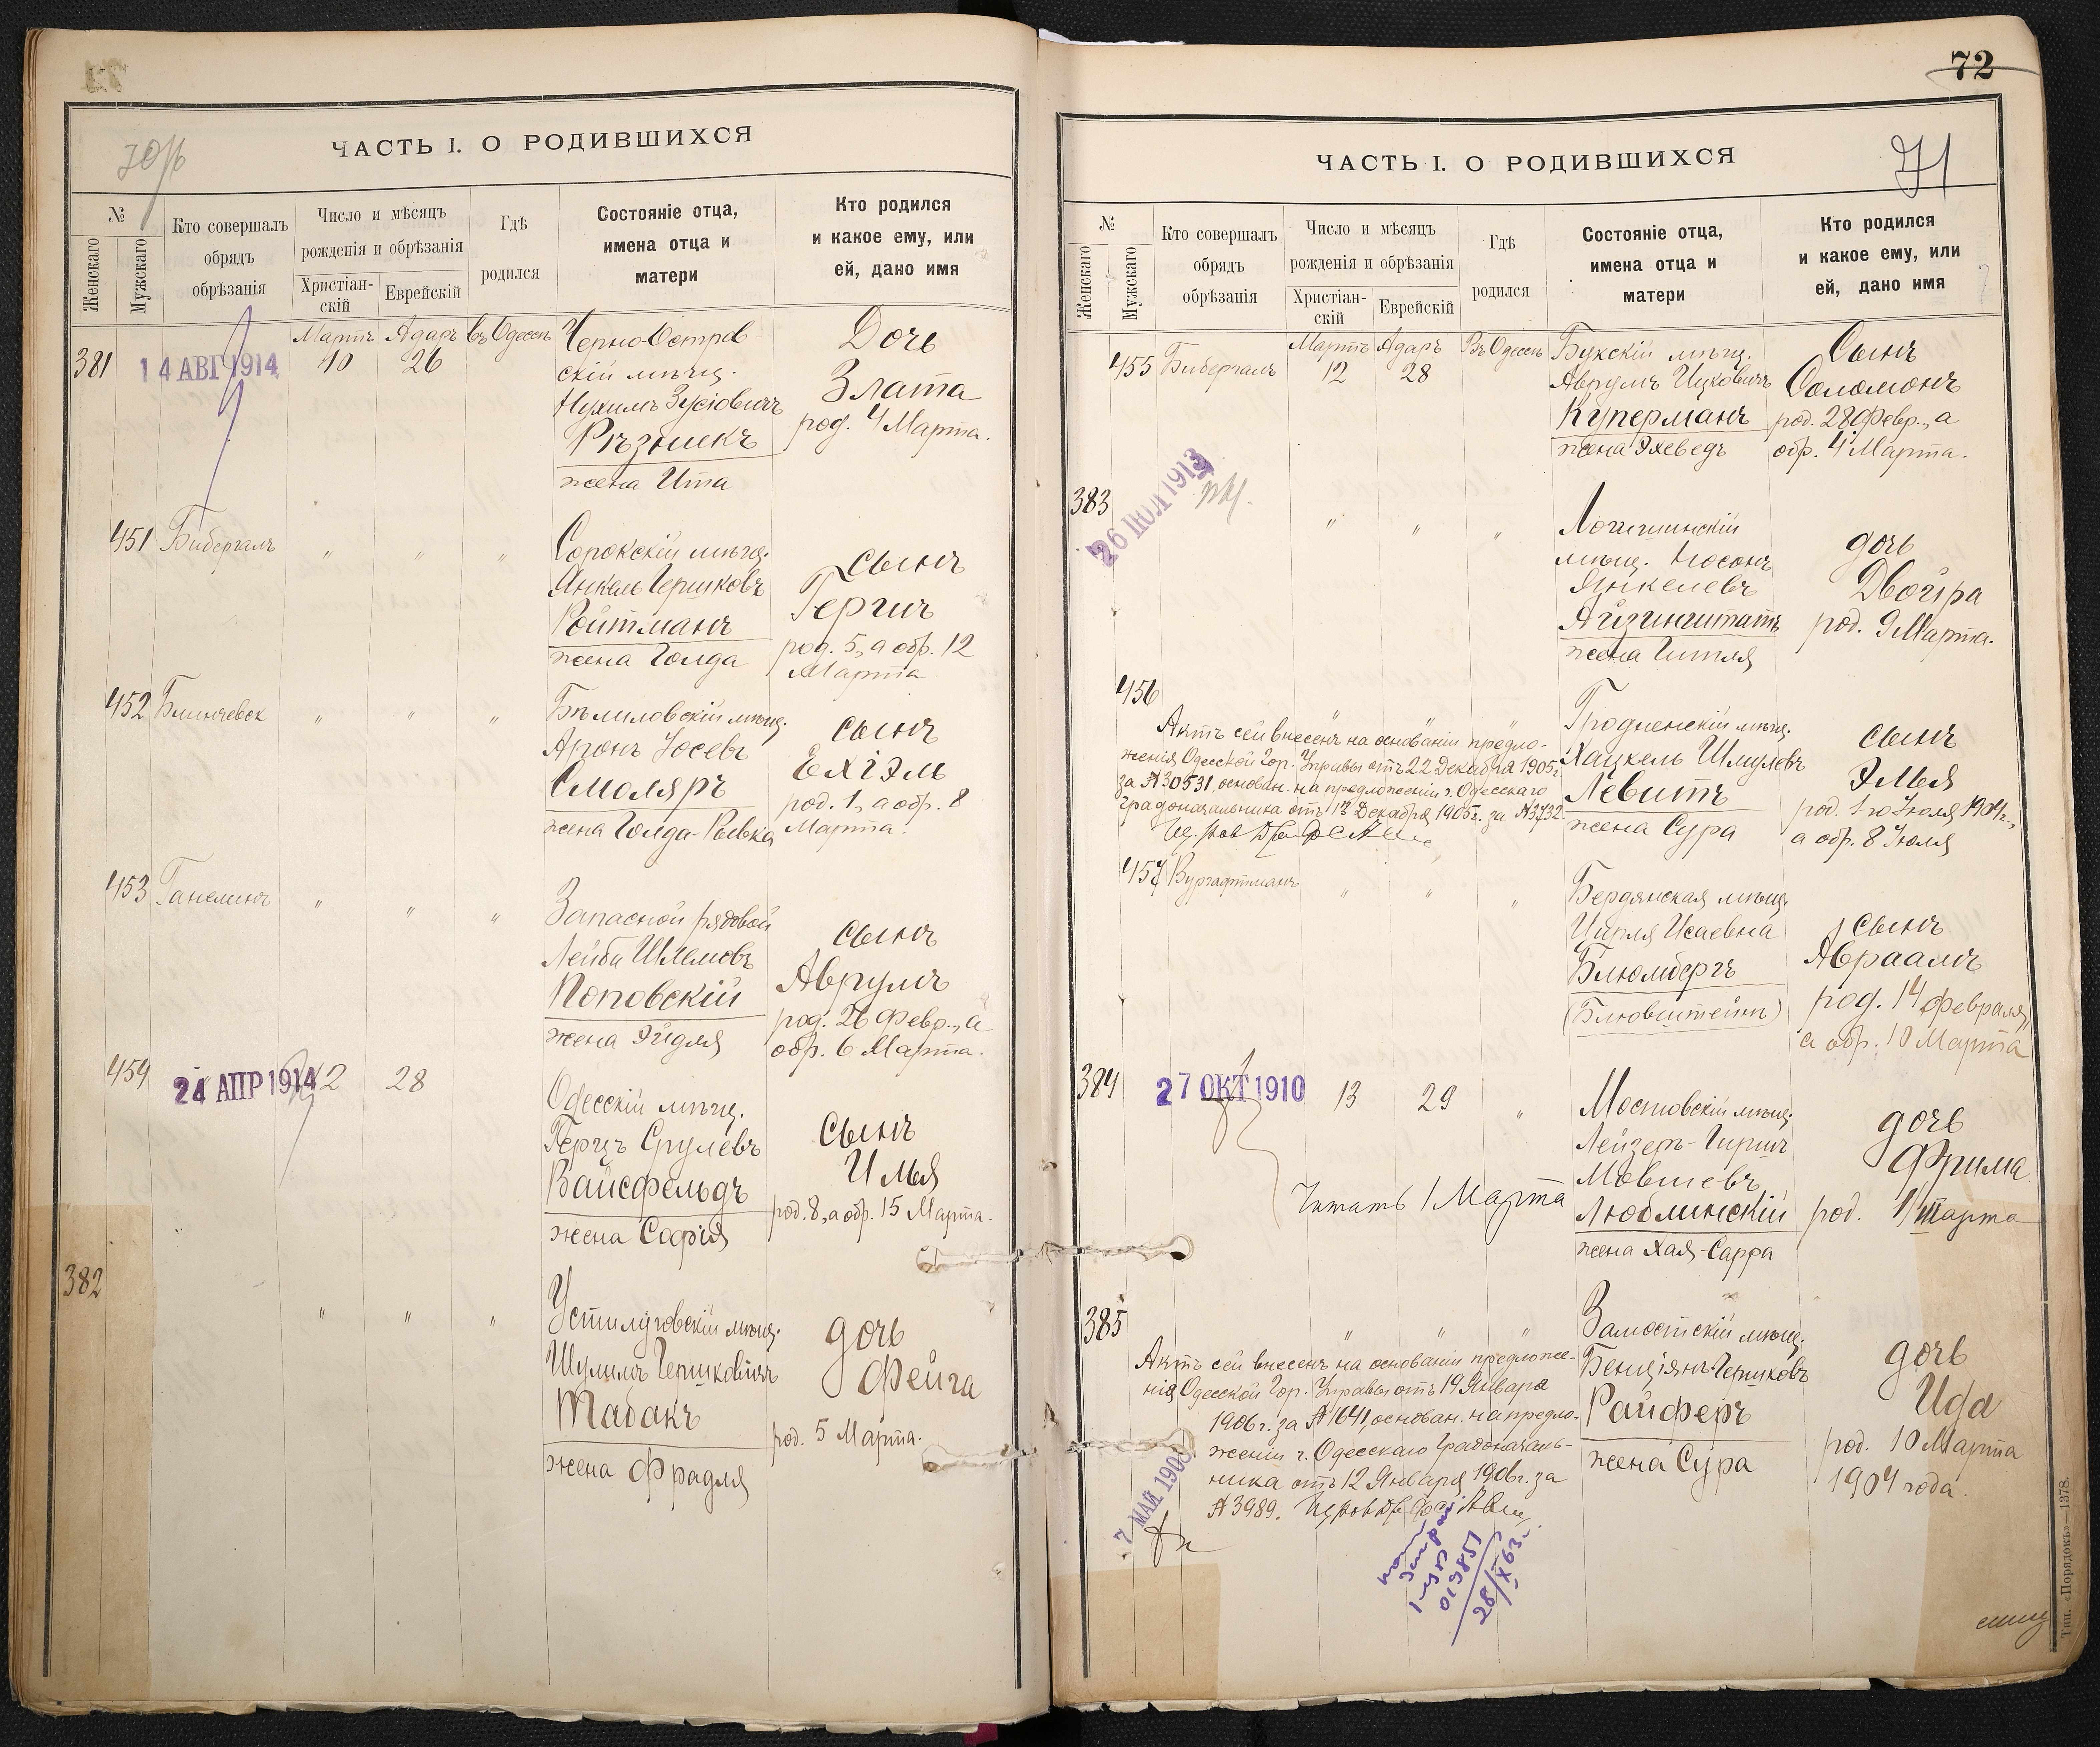 ЧАСТЬ I. О РОДИВШИХСЯ
№
Женскаго
Мужскаго
Кто совершалъ
обрядъ
обрѣзанія
Число и мѣсяцъ
рожденія и обрѣзанія
Христіан-
скій
Еврейскій
Гдѣ
родился
Состояніе отца,
имена отца и
матери
Кто родился
и какое ему, или
ей, дано имя
381
14 АВГ 1914
Мартъ
10
Адаръ
26
въ Одессѣ
Черно-Остров-
скій мѣщ.
Нухимъ Зусіовичъ
Рѣзникъ
жена Ита
Дочь
Злата
род. 4 Марта.
451
Бибергалъ
" " "
Сорокскій мѣщ.
Янкель Гершковъ
Ройтманъ
жена Голда
сынъ
Гершъ
род. 5, а обр. 12
Марта.
452
Блинчевск
" " "
Бѣлиловскій мѣщ.
Аронъ Іосевъ
Смоляръ
жена Голда-Ривка
сынъ
Ехіэль
род. 1, а обр. 8
Марта.
453
Ганелинъ
" " "
Запасной рядовой
Лейба Шлемовъ
Поповскій
жена Эйдля
сынъ
Аврумъ
род. 26 Февр., а
обр. 6 Марта.
454
24 АПР 1914
12
28
Одесскій мѣщ.
Герцъ Срулевъ
Вайсфельдъ
жена Софія
сынъ
Илья
род. 8, а обр. 15 Марта.
382
" " "
Устилуговскій мѣщ.
Шулимъ Гершковичъ
Табакъ
жена Фрадля
дочь
Фейга
род. 5 Марта.
72
71
ЧАСТЬ I. О РОДИВШИХСЯ
№
Женскаго
Мужскаго
Кто совершалъ
обрядъ
обрѣзанія
Число и мѣсяцъ
рожденія и обрѣзанія
Христіан-
скій
Еврейскій
Гдѣ
родился
Состояніе отца,
имена отца и
матери
Кто родился
и какое ему, или
ей, дано имя
455
Бибергалъ
Мартъ
12
Адаръ
28
Въ Одессѣ
Букскій мѣщ.
Аврумъ Ицковичъ
Куперманъ
жена Эхеведъ
Сынъ
Соломонъ
род. 28 Февр., а
обр. 4 Марта.
383
26 ІЮЛ 1913
" " "
Логишинскій
мѣщ. Носонъ
Янкелевъ
Айзинштатъ
жена Гитля
дочь
Двойра
род. 9 Марта.
456
" " "
Актъ сей внесенъ на основаніи предло-
женія Одесской Гор. Управы отъ 22 Декабря 1905 г.
за № 30531, основан. на предложеніи г. Одесскаго
Градоначальника отъ 13 Декабря 1905 г. за № 3732.
Гродненскій мѣщ.
Хацкель Шмулевъ
Левитъ
жена Сура
сынъ
Элья
род. 1го Іюля 1904 г.,
а обр. 8 Іюля
457
Вургафтманъ
" " "
Бердянская мѣщ.
Цирля Исаевна
Блюмбергъ
(Блювштейнъ)
сынъ
Авраамъ
род. 14 февраля,
а обр. 10 Марта
384
27 ОКТ 1910
13
29
"
Мостовскій мѣщ.
Лейзеръ-Гиршъ
Мовшевъ
Люблинскій
жена Хая-Сарра
Читать 1 Марта
дочь
Фрима
род. 1 Марта
385
" " "
Актъ сей внесенъ на основаніи предложе-
нія Одесской Гор. Управы отъ 19 Января
1906 г. за № 1641, основан. на предло-
женіи г. Одесскаго Градоначаль-
ника отъ 12 Января 1906 г. за
№ 3989.
Замостскій мѣщ.
Бенціянъ Гершковъ
Райферъ
жена Сура
дочь
Ида
род. 10 Марта
1904 года.
7 МАЙ 1908
019851
28/X 63
Тип. «Порядокъ»—1378.